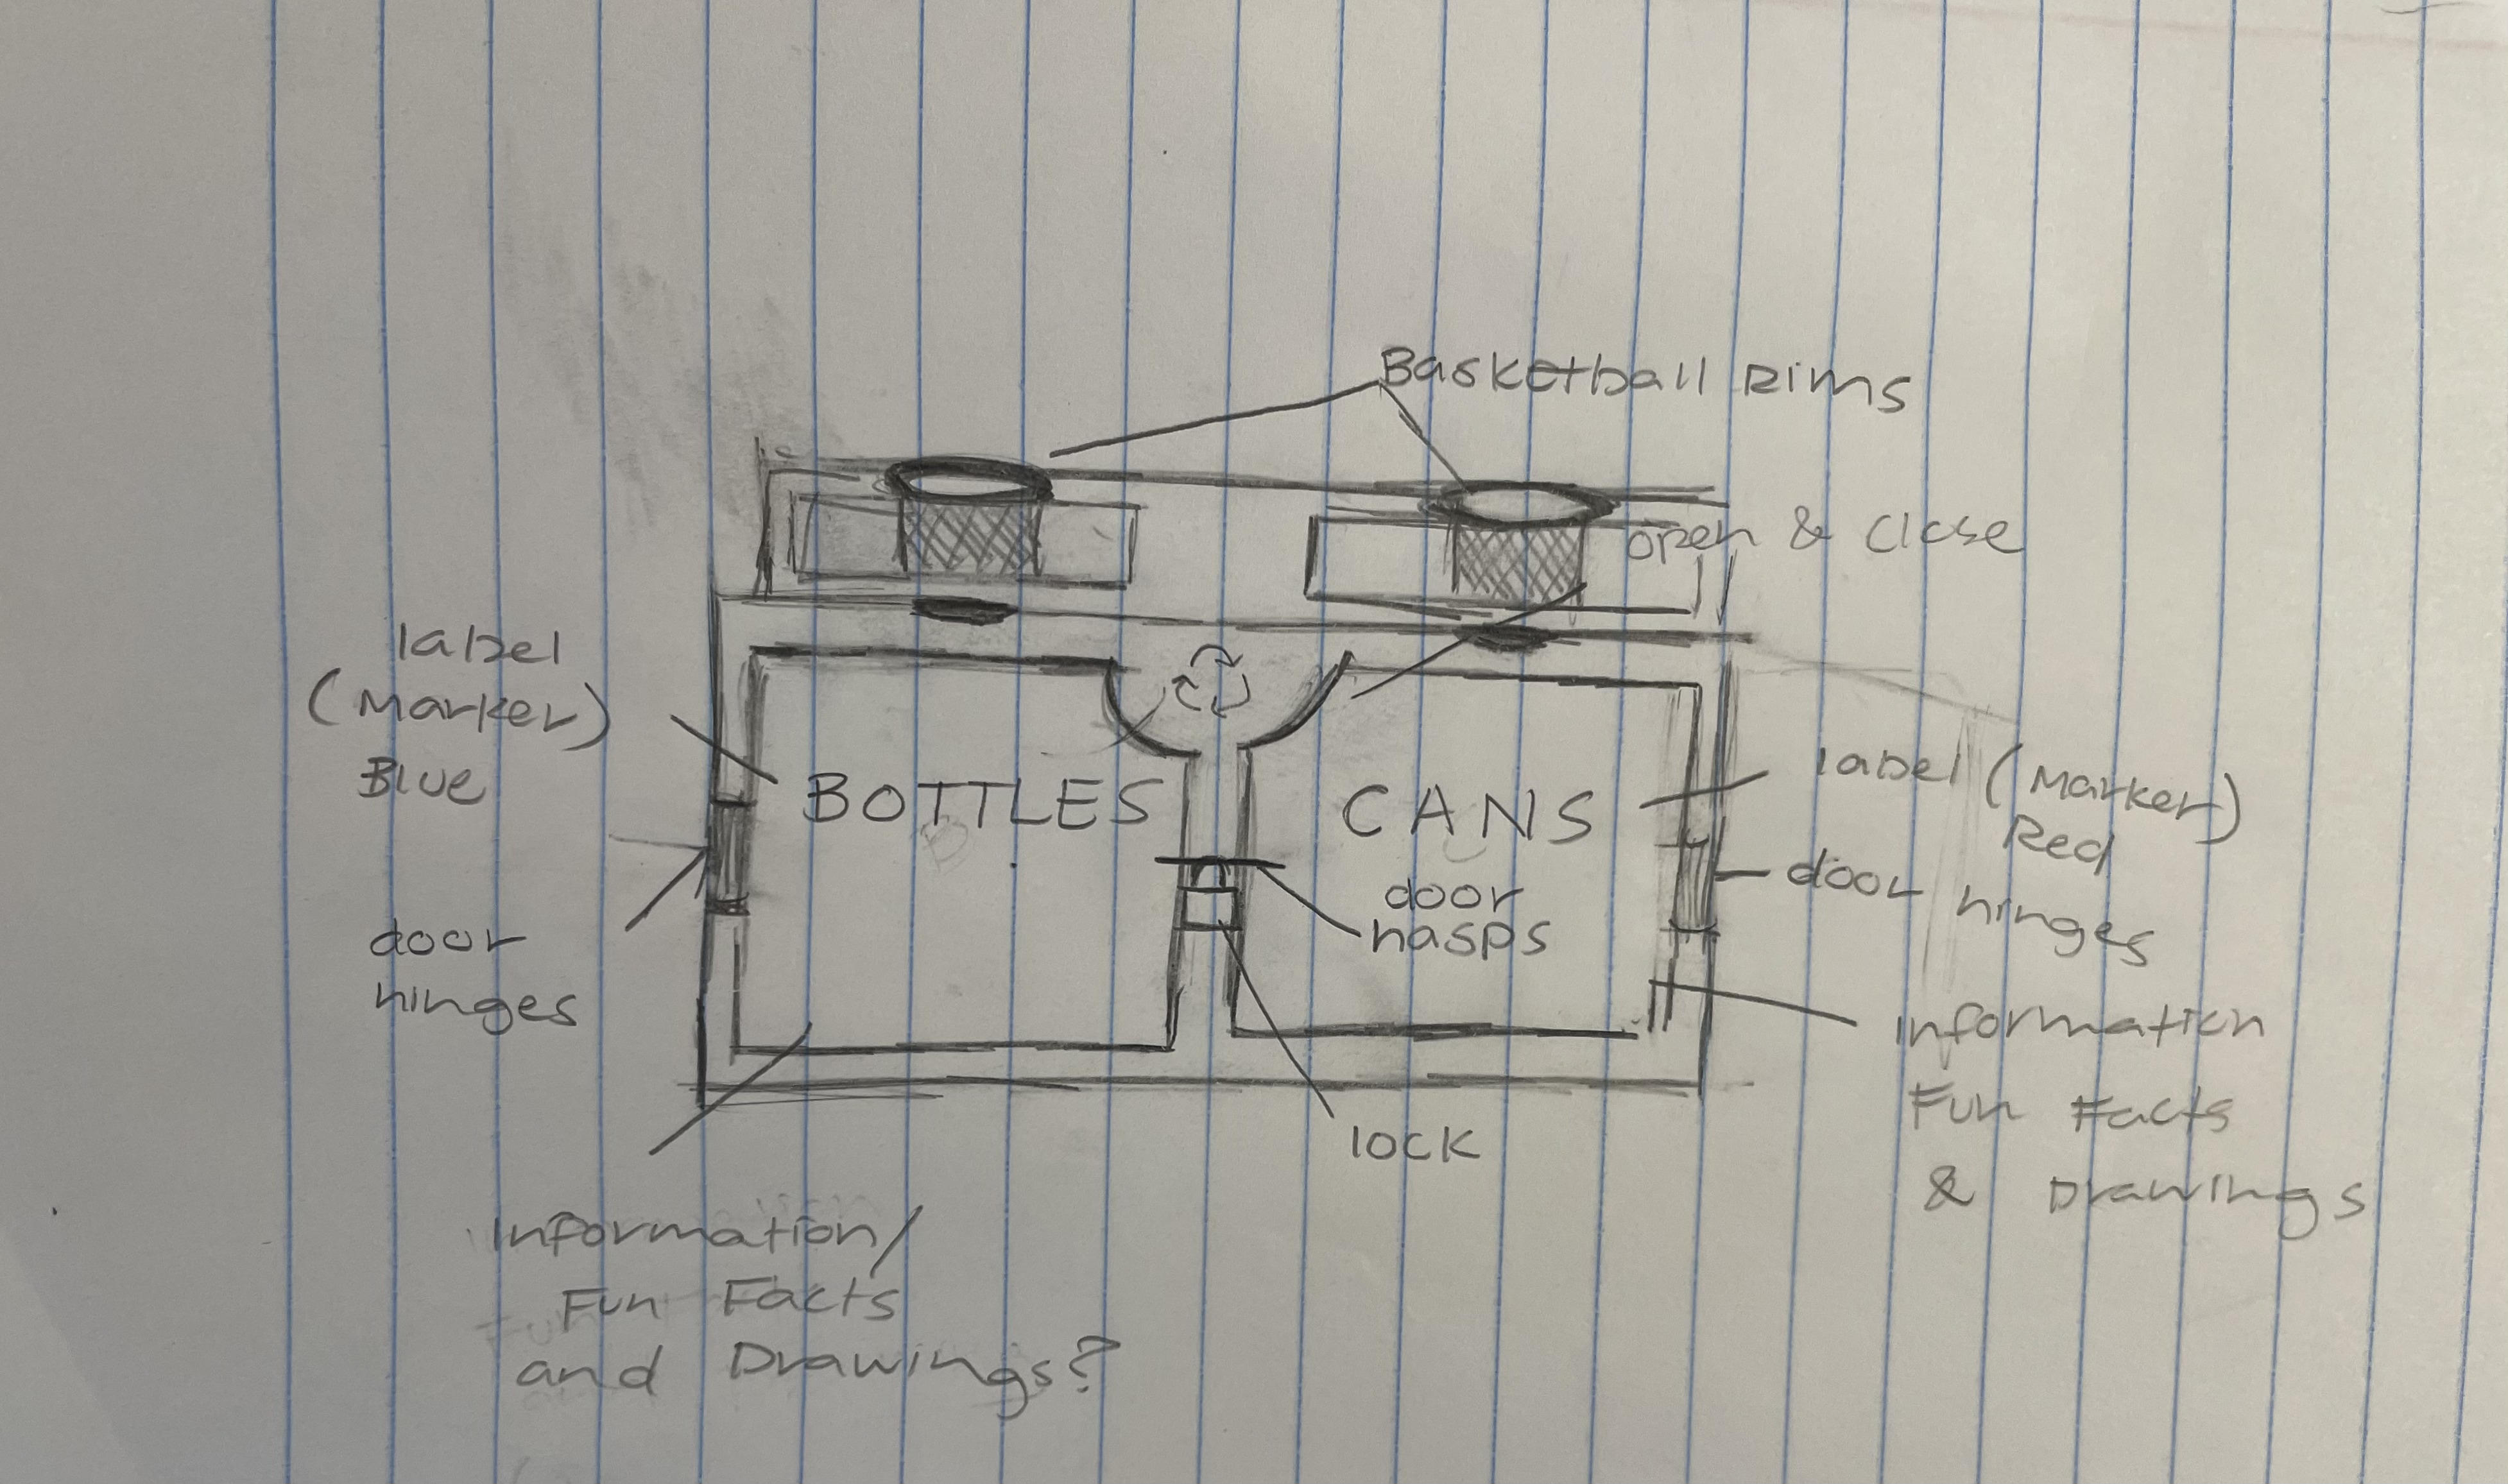 Basketball Rims
open & close
label
(Marker)
Blue
BOTTLES
CANS
label (Marker)
Red
door
hinges
door
hasps
door hinges
lock
Information
Fun Facts
& Drawings
Information/
Fun Facts
and Drawings?